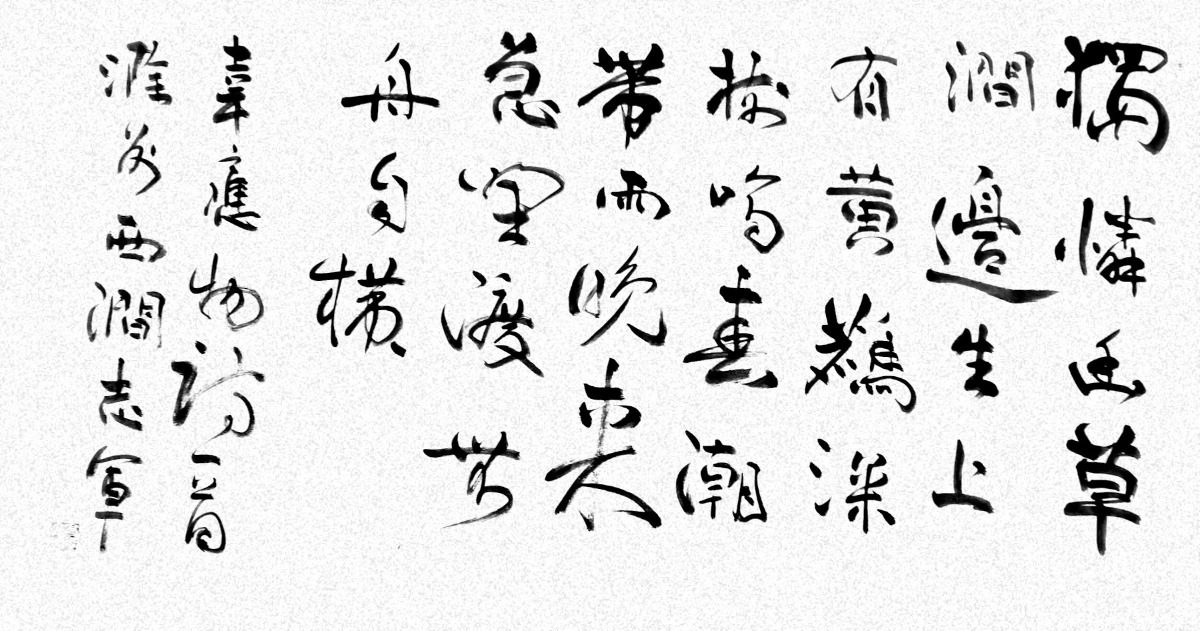 獨憐幽草
澗邊生上
有黃鸝深
樹鳴春潮
帶雨晚來
急野渡無
舟自橫
韋應物詩一首
滁州西澗志軍